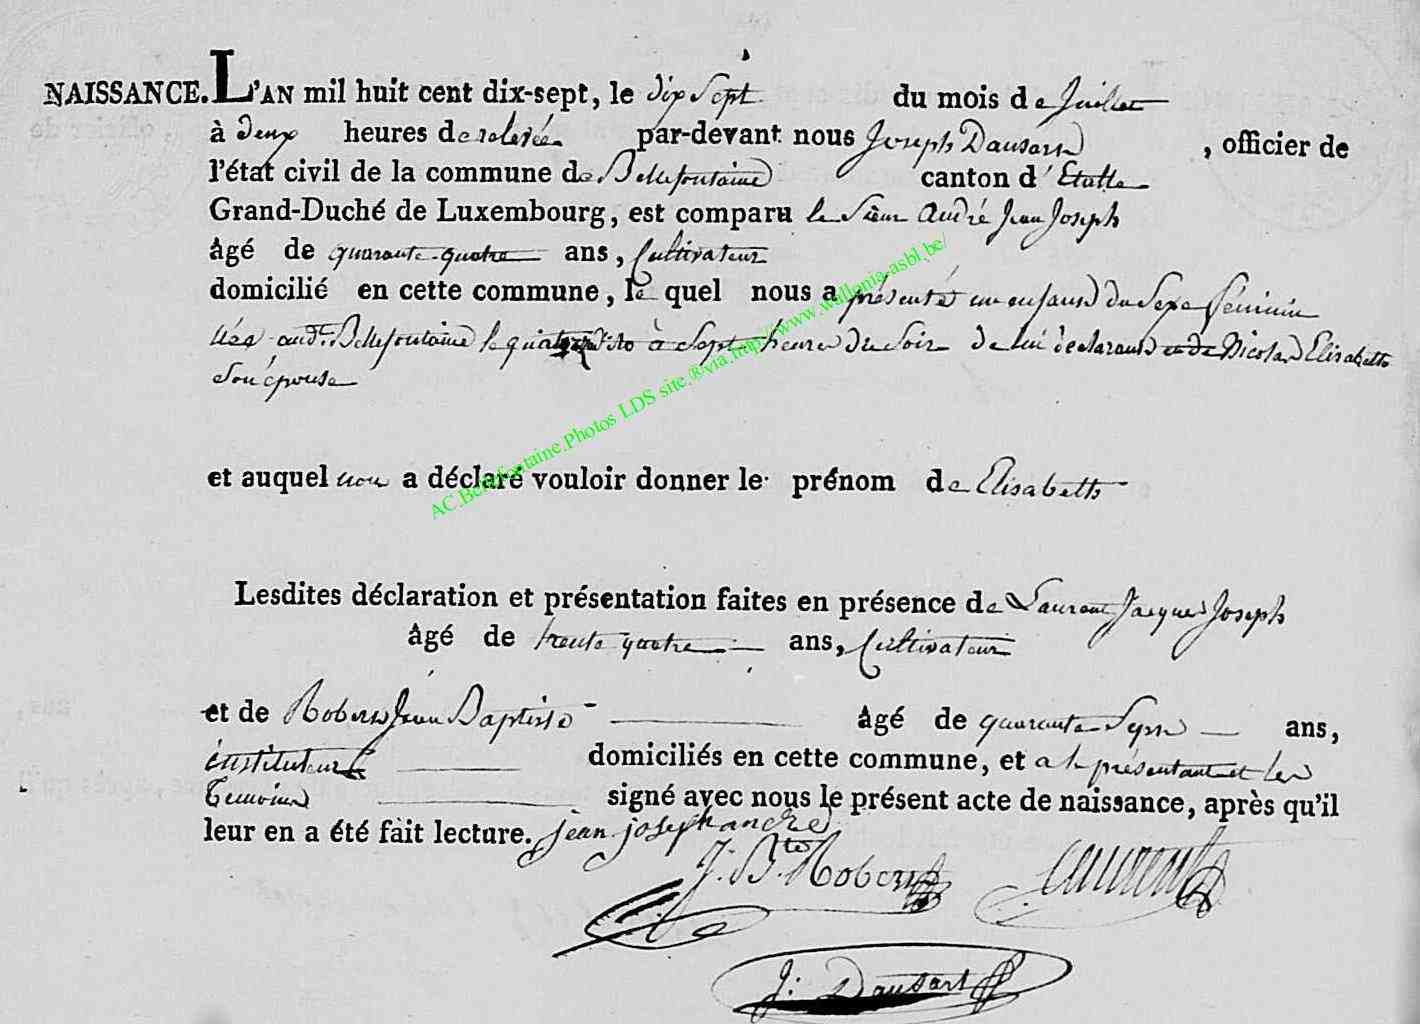 NAISSANCE. L'AN mil huit cent dix-sept, le dix Sept du mois de Juillet
à deux heures de relevée par-devant nous Joseph Dausart, officier de
l'état civil de la commune de Bellefontaine canton d'Etalle
Grand-Duché de Luxembourg, est comparu le Sieur André Jean Joseph
âgé de quarante quatre ans, Cultivateur
domicilié en cette commune, le quel nous a présenté un enfant du Sexe feminin
née audt Bellefontaine le à Sept heures du Soir de lui déclarant et de Nicolas Elisabeth
Son épouse
et auquel a déclaré vouloir donner le prénom de Elisabeth
Lesdites déclaration et présentation faites en présence de Laurent Jacques Joseph
âgé de trente quatre ans, Cultivateur
et de Robert Jean Baptiste âgé de quarante Sept ans,
instituteur domiciliés en cette commune, et a le présentant et les
Temoins signé avec nous le présent acte de naissance, après qu'il
leur en a été fait lecture. jean joseph andré
J. Bte Robert Laurent
J: Dausart
AC.Bellefontaine.Photos LDS site ® via http://www.wallonia-asbl.be/